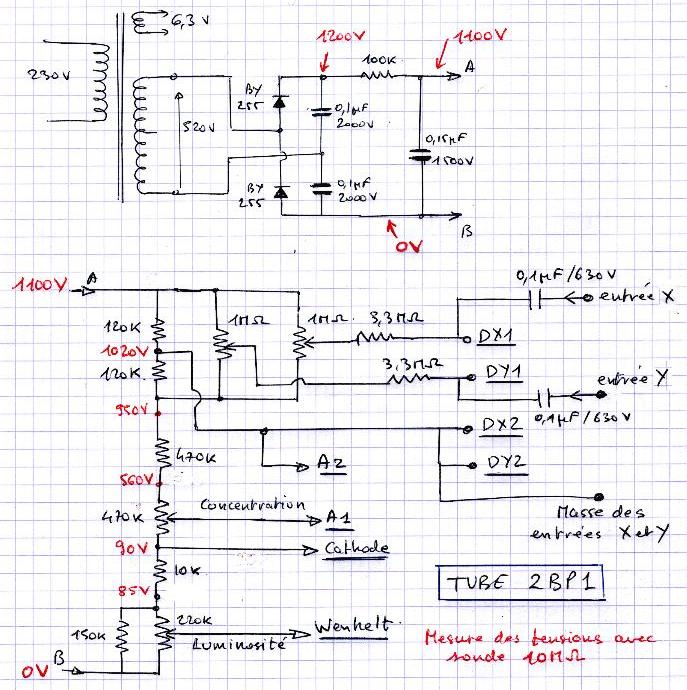 6,3V
1200V
1100V
230V
100K
A
BY
255
0,1µF
2000V
520V
0,15µF
1500V
BY
255
0,1µF
2000V
B
0V
1100V
A
0,1µF/630V
entrée X
120K
1MΩ
1MΩ
3,3MΩ
1020V
DX1
120K
3,3MΩ
DY1
entrée Y
950V
0,1µF/630V
DX2
470K
A2
DY2
560V
Concentration
470K
A1
Masse des
entrées X et Y
90V
Cathode
10K
85V
TUBE 2BP1
220K
150K
Wenhelt
Luminosité
Mesure des tensions avec
sonde 10MΩ
0V
B